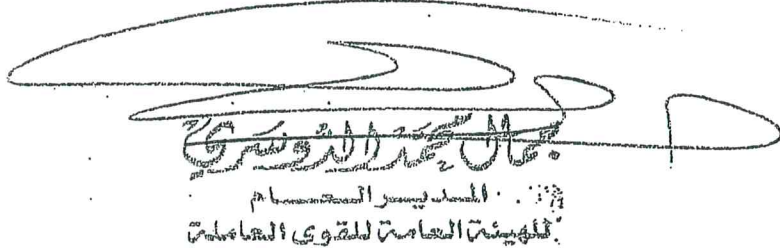 جمال محمد الدوسري
المدير العام
للهيئة العامة للقوى العاملة